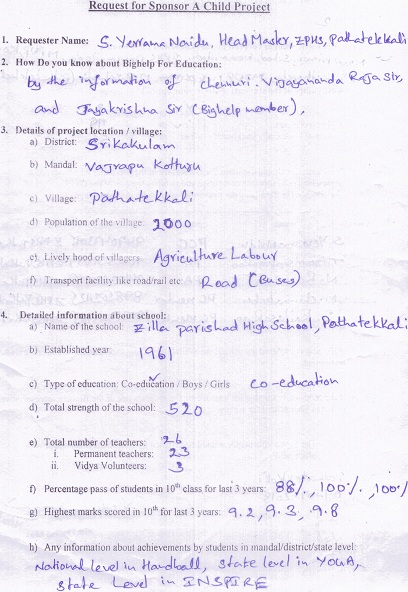 Request for Sponsor A Child Project
1. Requester Name: S. Yerrama Naidu, Head Master, ZPHS, Pathatekkali
2. How Do you know about Bighelp For Education:
by the information of chennuri. Vijayananda Raja Sir,
and Jayakrishna Sir (Bighelp member).
3. Details of project location / village:
a) District: Srikakulam
b) Mandal: Vajrapu Kotturu
c) Village: Pathatekkali
d) Population of the village: 2000
e) Lively hood of villagers: Agriculture Labour
f) Transport facility like road/rail etc: Road (Buses)
4. Detailed information about school:
a) Name of the school: Zilla parishad High School, Pathatekkali
b) Established year: 1961
c) Type of education: Co-education / Boys / Girls co-education
d) Total strength of the school: 520
e) Total number of teachers: 26
i. Permanent teachers: 23
ii. Vidya Volunteers: 3
f) Percentage pass of students in 10th class for last 3 years: 88%, 100%, 100%
g) Highest marks scored in 10th for last 3 years: 9.2, 9.3, 9.8
h) Any information about achievements by students in mandal/district/state level:
National level in Handball, State level in YOGA,
State Level in INSPIRE